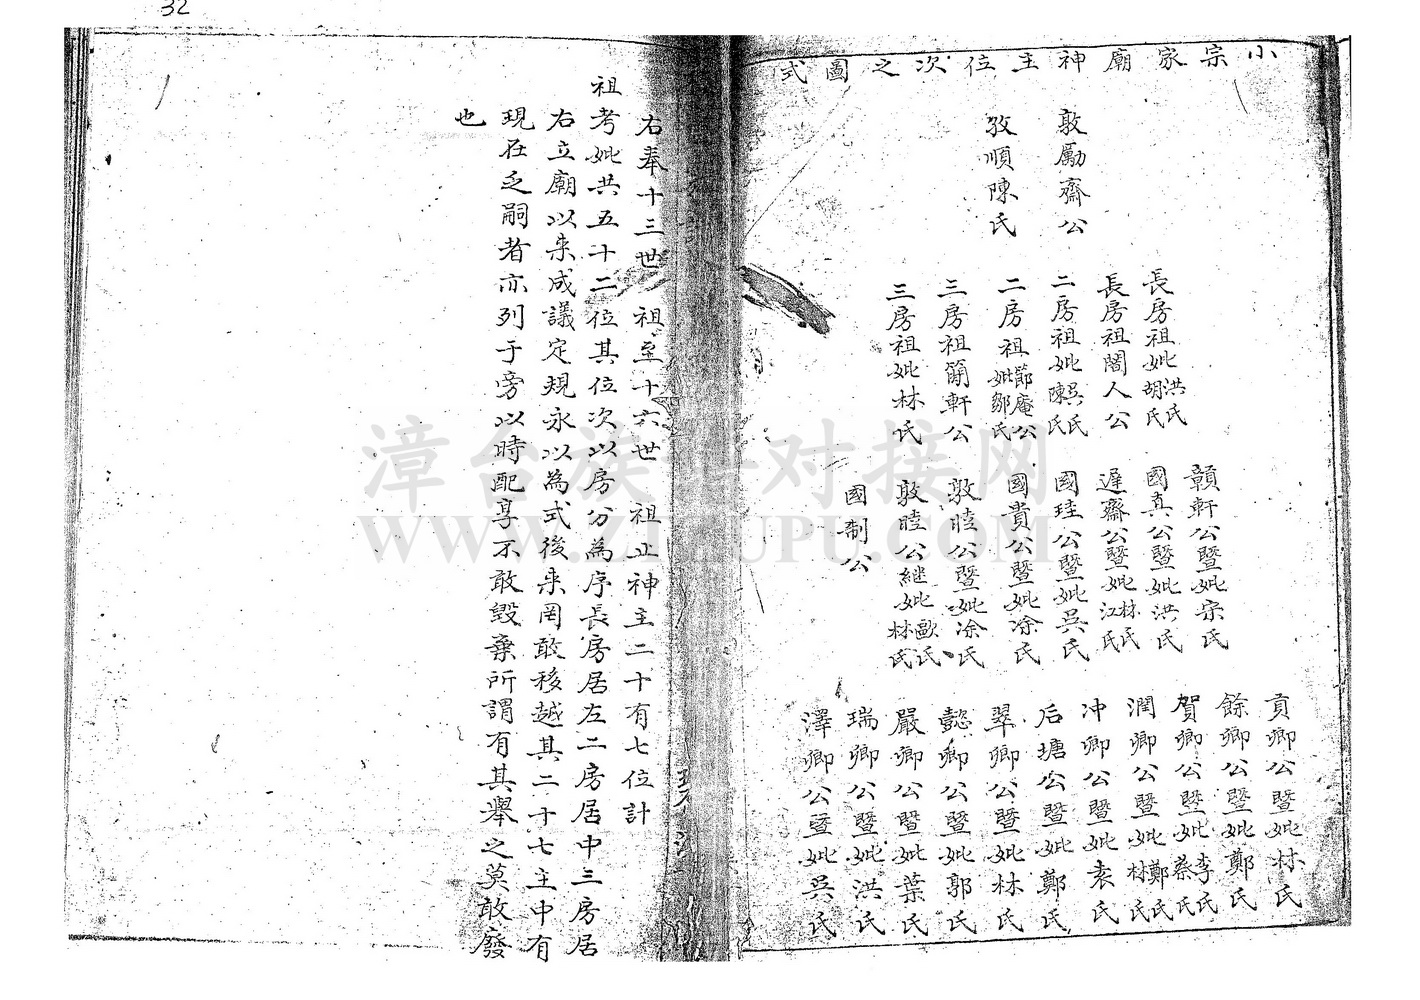 32
小宗家廟神主位次之圖式
敦勵齋公
孜順陳氏
長房祖妣洪氏胡氏
長房祖闇人公
二房祖妣吳氏陳氏
二房祖節庵公妣鄒氏
三房祖簡軒公
三房祖妣林氏
贑軒公暨妣宗氏
國真公暨妣洪氏
遲齋公暨妣林氏江氏
國珪公暨妣吳氏
國貴公暨妣凃氏
敦睦公暨妣凃氏
敦睦公継妣歐氏林氏
國制公
貢卿公暨妣林氏
餘卿公暨妣鄭氏
賀卿公暨妣李氏蔡氏
潤卿公暨妣鄭氏林氏
冲卿公暨妣袁氏
后塘公暨妣鄭氏
翠卿公暨妣林氏
懿卿公暨妣郭氏
嚴卿公暨妣葉氏
瑞卿公暨妣洪氏
澤卿公暨妣吳氏
右奉十三世 祖至十六世 祖止神主二十有七位計
祖考妣共五十二位其位次以房分為序長房居左二房居中三房居
右立廟以来咸議定規永以為式後来罔敢移越其二十七主中有
現在乏嗣者亦列于旁以時配享不敢毀棄所謂有其舉之莫敢廢
也
漳台族谱对接网
WWW.ZTZUPU.COM